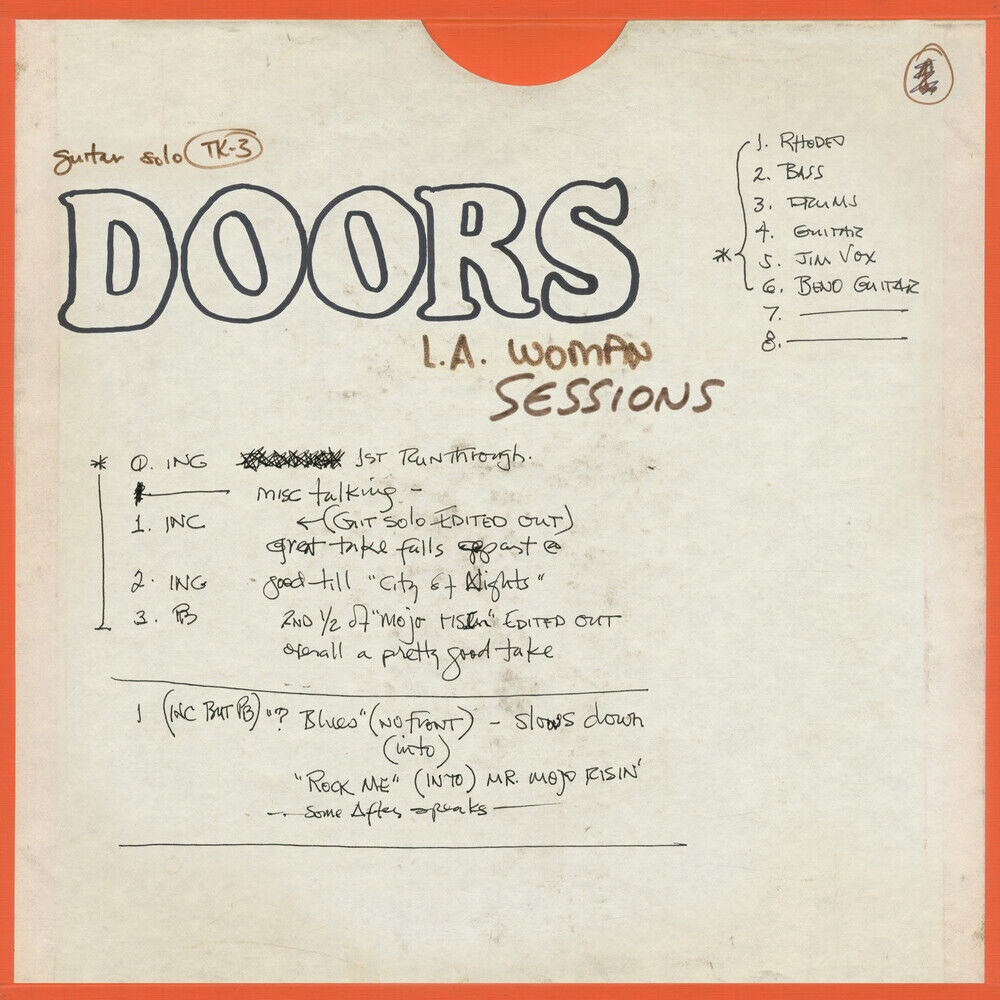 guitar solo TK-3
DOORS
L.A. WOMAN
SESSIONS
1. RHODES
2. BASS
3. DRUMS
4. GUITAR
* 5. JIM VOX
6. BEND GUITAR
7.
8.
* 0. INC 1ST RUNThrough.
misc talking -
1. INC ←(GUIT SOLO EDITED OUT)
great take falls apart
2. INC good till "City of Nights"
3. PB 2ND 1/2 of "Mojo RISIN" EDITED OUT
overall a pretty good take
1 (INC BUT PB) "? Blues" (NO FRONT) - slows down
(into)
"ROCK ME" (INTO) MR. MOJO RISIN'
- Some After speaks -